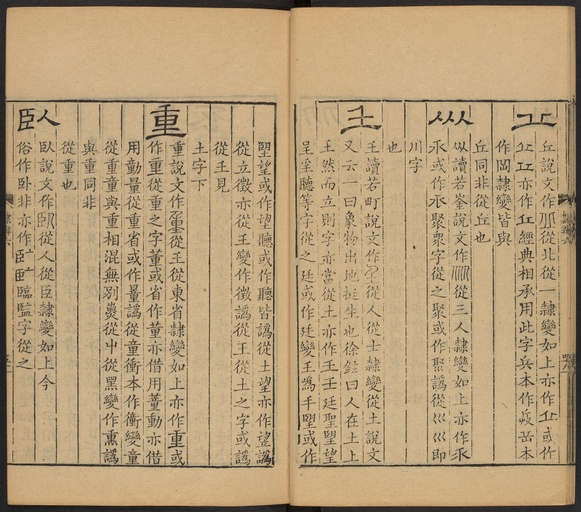 丘說文作丠從北從一隸變如上亦作丠或作
亦作丘經典相承用此字兵本作 岳本
作 隸變皆與
丘同非從丘也
㐺
㐺讀若崟說文作 從三人隸變如上亦作
或作 聚衆字從之聚或作聚譌從巛巛即
川字
也
𡈼
𡈼讀若町說文作𡈼從人從士隸變從土說文
又云一曰象物出地挺生也徐鉉曰人在土上
𡈼然而立則字亦當從土亦作王王廷聖朢望
呈 聽等字從之廷或作廷變王為手朢或作
朢望或作望聽或作聽皆譌從土望亦作望譌
從立徵亦從𡈼變作徵譌從王從土之字或譌
從王見
土字下
重
重說文作 從𡈼從東省隸變如上亦作重或
作重從重之字董或省作董亦借用董動亦借
用勳量從重省或作量譌從童衝本作衝變童
從重童與重相混無別 從屮從黑變作熏譌
與重同非
從重也
臥
臥說文作臥從人從臣隸變如上今
俗作卧非亦作 臨監字從之